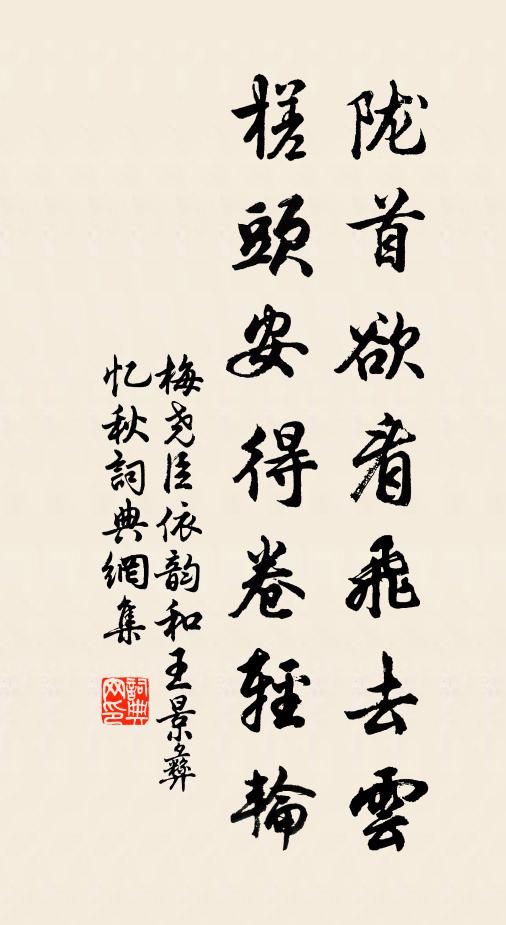 陇首欲看飛去雲
槎頭安得卷輕輪
梅尧臣依韵和王景彝
忆秋詞典網集
詞典网印